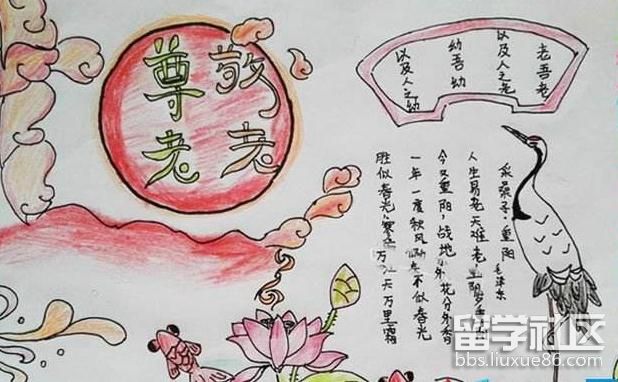 敬老
尊老
老吾老
以及人之老
幼吾幼
以及人之幼
采桑子·重阳
毛泽东
人生易老天难老
今又重阳,战地 花分外香
一年一度秋风 不似春光
胜似春光,寥 万 天万里霜
留学社区
bbs.liuxue86.com